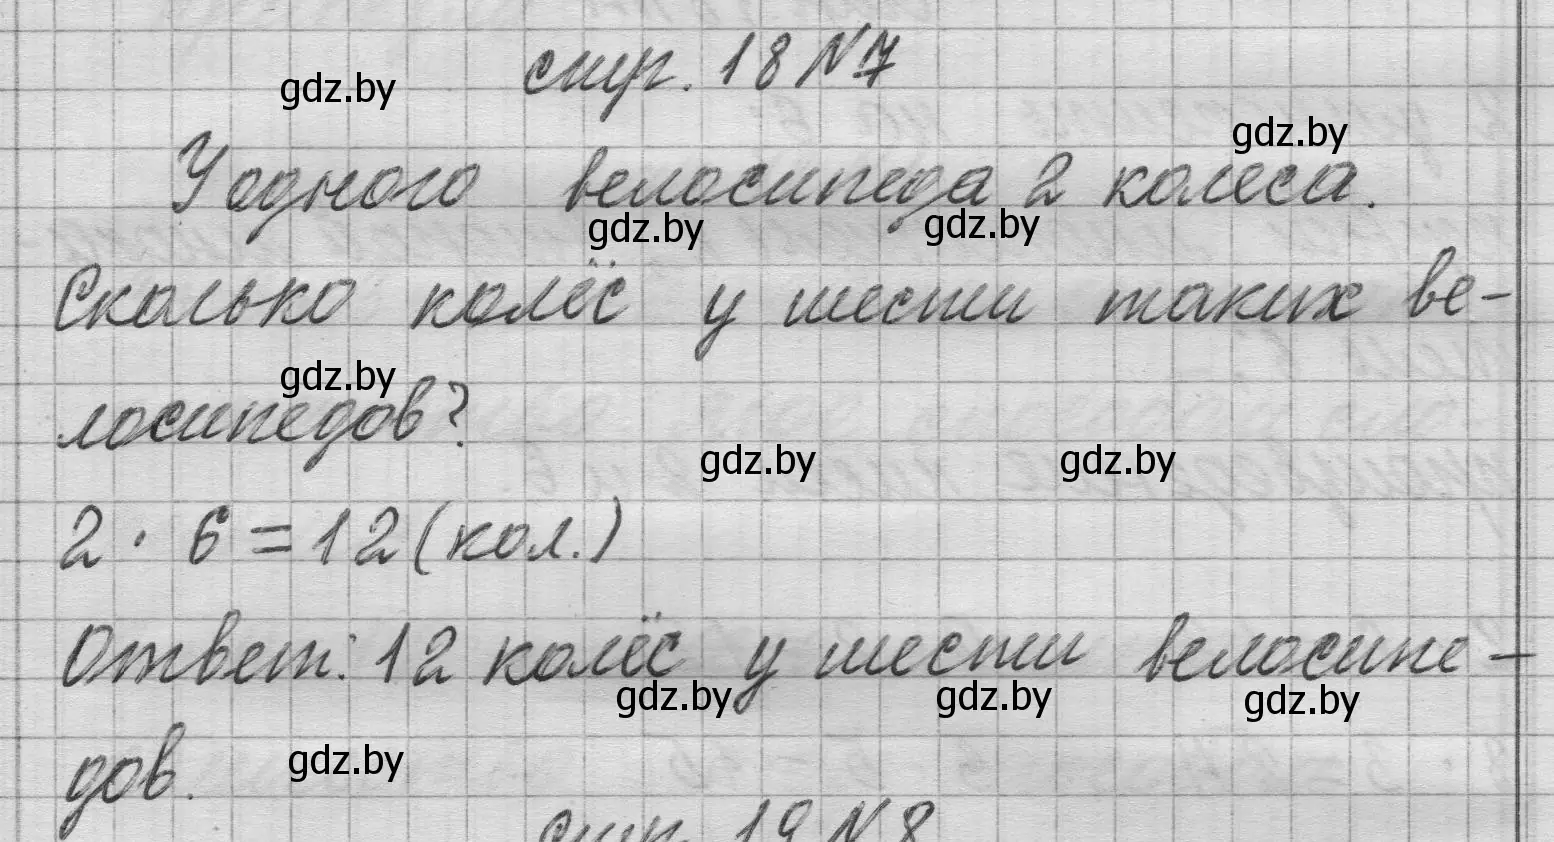 стр. 18 №7
gdz.by
gdz.by
У одного велосипеда 2 колеса.
gdz.by gdz.by
Сколько колёс у шести таких ве-
gdz.by
лосипедов?
gdz.by gdz.by
2 · 6 = 12 (кол.)
Ответ: 12 колёс у шести велосипе-
gdz.by gdz.by gdz.by
дов.
gdz.by
стр. 19 №8